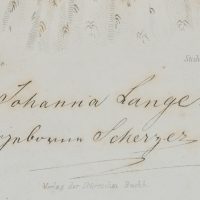 Stah
Johanna Lange
geborne Scherzer
Verlag der Störeschen Buchh.